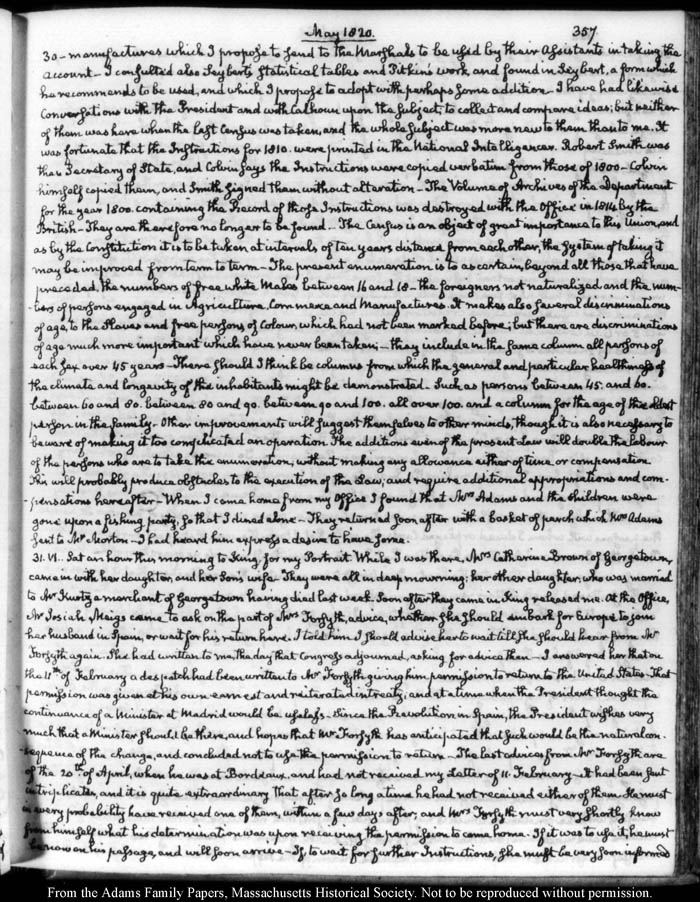 May 1820.
357.
30 - manufactures which I propose to send to the Marshals to be used by their Assistants in taking the
account - I consulted also Seybert's Statistical tables and Pitkin's work, and found in Seybert, a form which
he recommends to be used, and which I propose to adopt with perhaps some addition - I have had likewise
Conversations with the President and with Calhoun upon the subject, to collect and compare ideas; but neither
of them was here when the last Census was taken, and the whole subject was more new to them than to me. It
was fortunate that the Instructions for 1810. were printed in the National Intelligencer. Robert Smith was
then Secretary of State, and Colvin says the Instructions were copied verbatim from those of 1800 - Colvin
himself copied them, and Smith signed them without alteration - The Volume of Archives of the Department
for the year 1800. containing the Record of those Instructions was destroyed with the Office in 1814 by the
British - They are therefore no longer to be found - The Census is an object of great importance to this Union, and
as by the Constitution it is to be taken at intervals of ten years distance from each other, the System of taking it
may be improved from term to term - The present enumeration is to ascertain, beyond all those that have
preceded, the numbers of free white Males between 16 and 18 - the foreigners not naturalized and the num-
bers of persons engaged in Agriculture, Commerce and Manufactures. It makes also several discriminations
of age, to the Slaves and free persons of Colour, which had not been marked before; but there are discriminations
of age much more important which have never been taken; - they include in the same column all persons of
each sex over 45 years - There should I think be columns from which the general and particular healthiness of
the climate and longevity of the inhabitants might be demonstrated - Such as persons between 45. and 60.
between 60 and 80. between 80 and 90. between 90 and 100. all over 100. and a column for the age of the oldest
person in the family. Other improvements will suggest themselves to other minds, though it is also necessary to
beware of making it too complicated an operation. The additions even of the present Law will double the labour
of the persons who are to take the enumeration, without making any allowance either of time or compensation
This will probably produce obstacles to the execution of the Law; and require additional appropriations and com-
-pensations hereafter - When I came home from my Office I found that Mrs Adams and the children were
gone upon a fishing party, so that I dined alone - They returned soon after with a basket of perch which Mrs Adams
sent to Mr Morton - I had heard him express a desire to have some.
31. VI. Sat an hour this morning to King, for my Portrait. While I was there, Mrs Catherine Brown of Georgetown,
came in with her daughter, and her Son's wife. They were all in deep mourning; her other daughter, who was married
to Mr Kurtz a merchant of Georgetown having died last week. Soon after they came in King released me. At the Office,
Mr Josiah Meigs came to ask on the part of Mrs Forsyth, advice, whether she should embark for Europe to join
her husband in Spain, or wait for his return here. I told him I should advise her to wait till she should hear from Mr
Forsyth again. She had written to me, the day that Congress adjourned, asking for advice then - I answered her that on
the 11th of February a despatch had been written to Mr Forsyth giving him permission to return to the United States - That
permission was given at his own earnest and reiterated intreaty; and at a time when the President thought the
continuance of a Minister at Madrid would be useless - Since the Revolution in Spain, the President wishes very
much that a Minister should be there, and hopes that Mr Forsyth has anticipated that such would be the natural con-
sequence of the change, and concluded not to use the permission to return - The last advices from Mr Forsyth are
of the 20th of April, when he was at Bordeaux, and had not received my Letter of 11. February - It had been sent
in triplicates, and it is quite extraordinary that after so long a time he had not received either of them. He must
in every probability have received one of them, within a few days after; and Mrs Forsyth must very shortly know
from himself what his determination was, upon receiving the permission to come home. If it was to use it, he must
be now on his passage, and will soon arrive - If, to wait for further Instructions, she must be very soon informed
From the Adams Family Papers, Massachusetts Historical Society. Not to be reproduced without permission.